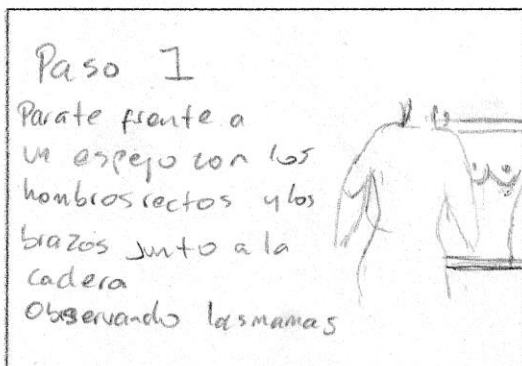 Paso 1
Parate frente a
un espejo con los
hombros rectos y los
brazos junto a la
cadera
Observando las mamas